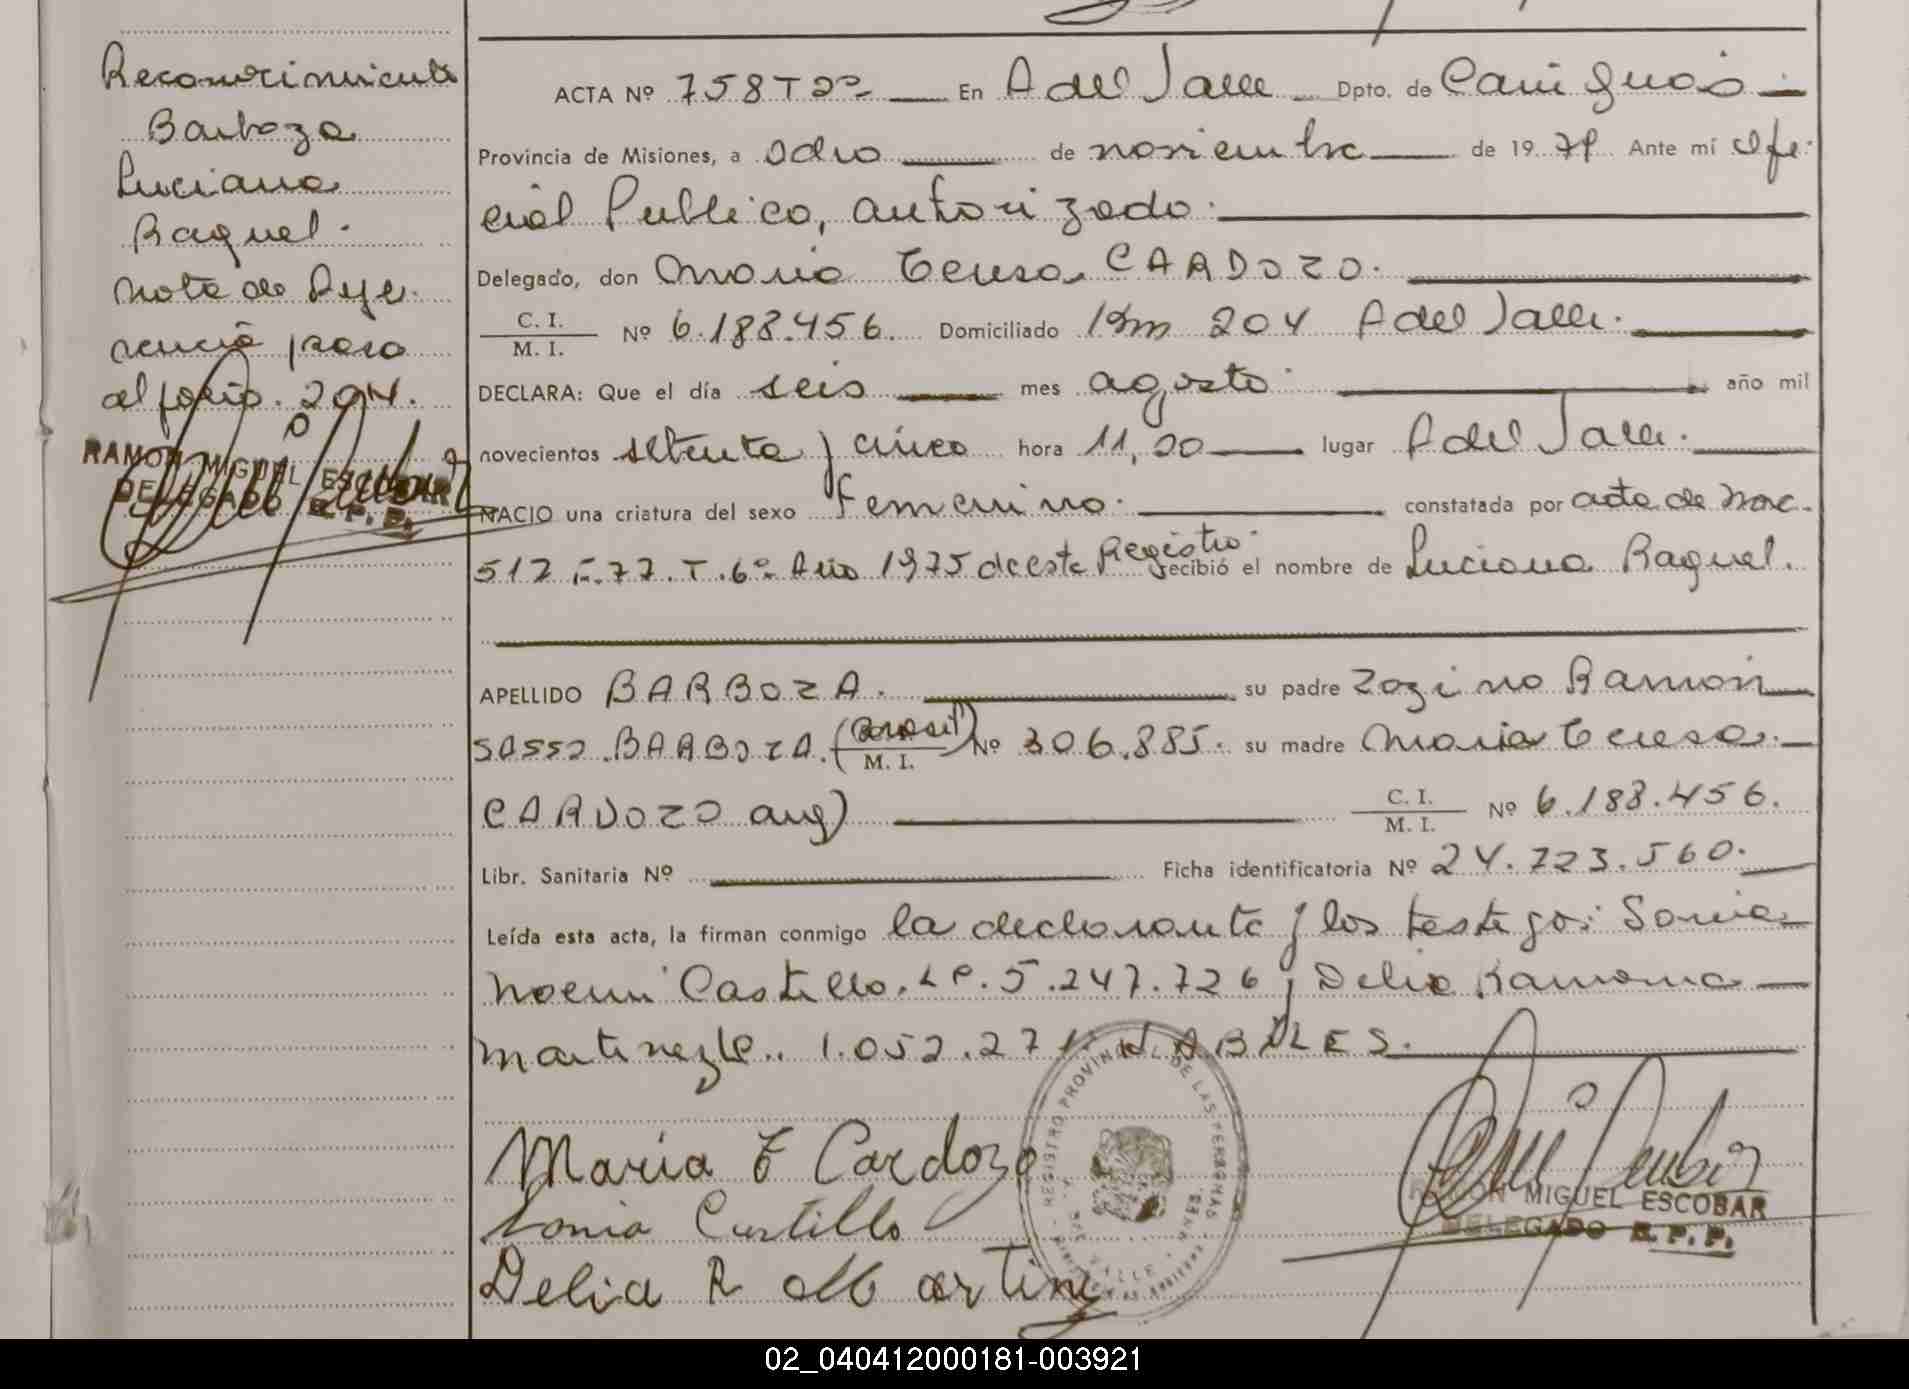 Reconocimiento
Barboza
Luciana
Raquel.
nota de Refe-
rencia pasa
al folio. 204.
RAMON MIGUEL ESCOBAR
DELEGADO R. P. P.
ACTA Nº 758 T 2º En A del Valle Dpto. de Cainguás
Provincia de Misiones, a ocho de noviembre de 19 79 Ante mí Ofi-
cial Publico, autorizado.
Delegado, don Maria Teresa CARDOZO.
C. I.
M. I. Nº 6.188.456. Domiciliado Km 204 A del Valle.
DECLARA: Que el día seis mes agosto año mil
novecientos setenta y cinco hora 11,00 lugar A del Valle.
NACIO una criatura del sexo Femenino. constatada por acta de Nac.
512 F. 77. T. 6º Año 1975 de este Registro. recibió el nombre de Luciana Raquel.
APELLIDO BARBOZA. su padre Zozimo Ramón
SASSO BARBOZA. (Brasil) M. I. Nº 306.885. su madre Maria Teresa
CARDOZO arg) C. I.
M. I. Nº 6.188.456.
Libr. Sanitaria Nº Ficha identificatoria Nº 24.723.560.
Leída esta acta, la firman conmigo la declarante y los testigos: Sonia
Noemi Castillo. LC. 5.247.726 y Delia Ramona
Martinez LC. 1.052.271 HABILES.
Maria T Cardozo
Sonia Castillo
Delia R Martinez
REGISTRO PROVINCIAL DE LAS PERSONAS
RAMON MIGUEL ESCOBAR
DELEGADO R. P. P.
02_040412000181-003921